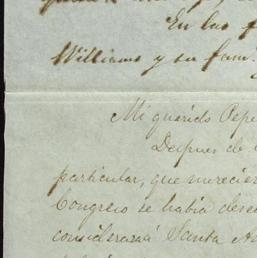 En las
Williams y su fam.
Mi querido Pepe
Despues de
particular, que merecier
Congreso se habia desec
considerará Santa An